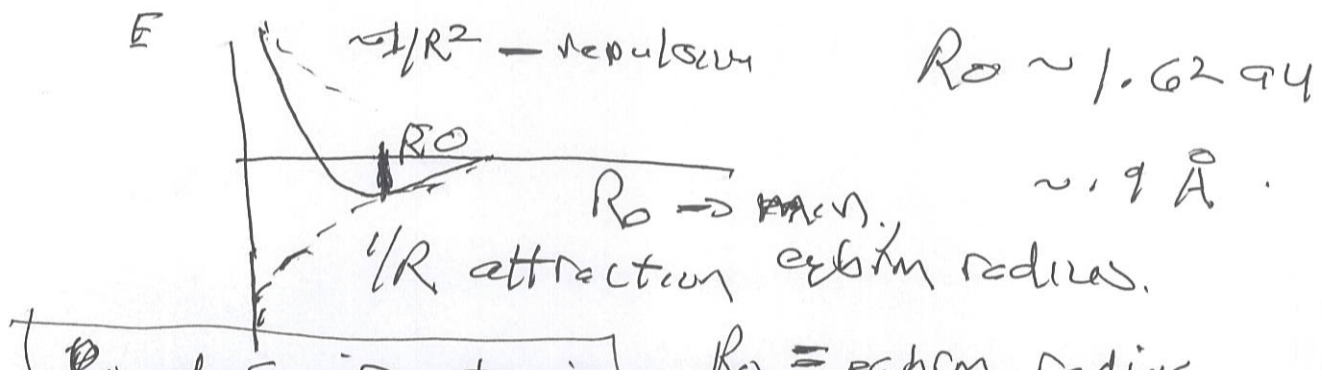 E
~1/R² — repulsion
R0 ~ 1.62 au
R0
~ .9 Å.
R0 → min.
1/R attraction eqbrm radius.
R0 = eqbrm radius